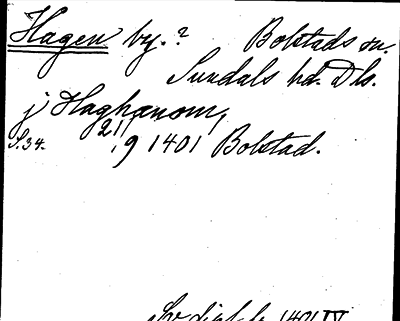 Hagen by.? Bolstads sn.
Sundals hd. Dls.
j Haghænom,
S.34. 21/9 1401 Bolstad.
Sv. dipl. 1401 IV